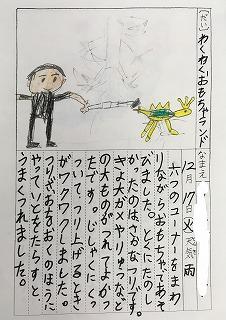 (だい)
わくわくおもちゃランド
なまえ
12月17日(火)天気 雨
六つのコーナーをまわ
りながらおもちゃであそ
びました。とくにたのし
かったのはさかなつりです。
きょ大ガメやりゅうなど
の大ものがつれてよかっ
たです。じしゃくにくっ
ついて、つり上げるとき
がワクワクしました。
つりざおをおくのほうに
やって、いとをたらすと、
うまくつれました。